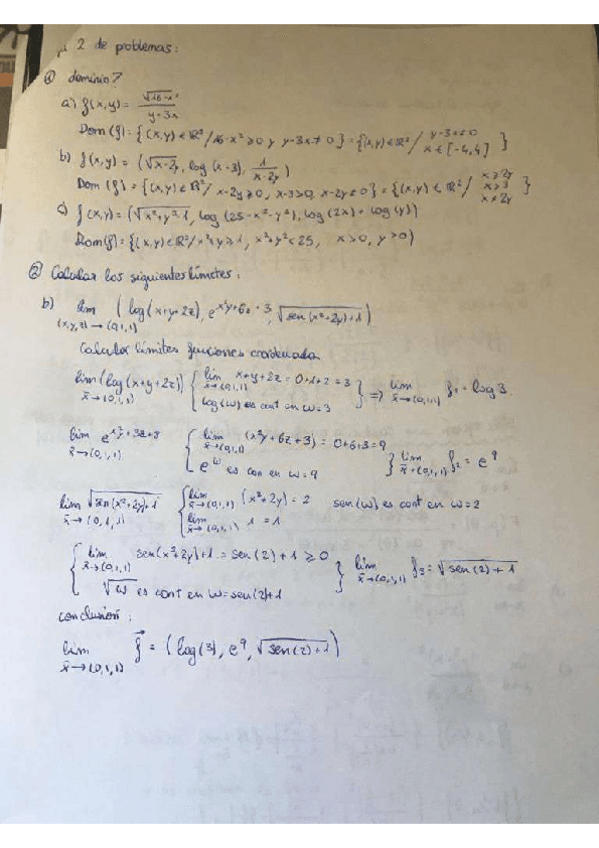 2 de problemas:
① dominio?
a) f(x,y) = √16-x² / y-3x
Dom(f) = { (x,y) ∈ ℝ² / 16-x² ≥ 0 y y-3x ≠ 0 } = { (x,y) ∈ ℝ² / y-3x ≠ 0 x ∈ [-4,4] }
b) f(x,y) = (√x-2y, log(x-3), 1/x-2y)
Dom(f) = { (x,y) ∈ ℝ² / x-2y ≥ 0, x-3>0, x-2y ≠ 0 } = { (x,y) ∈ ℝ² / x ≥ 2y x>3 x ≠ 2y }
c) f(x,y) = (√x²+y²-1, log(25-x²-y²), log(2x)+log(y))
Dom(f) = { (x,y) ∈ ℝ² / x²+y² ≥ 1, x²+y² < 25, x>0, y>0 )
② Calcular los siguientes límites:
b) lim (x,y,z)→(0,1,1) ( log(x+y+2z), e^xy+6z+3, √sen(x²+2y)+1 )
Calcular límites funciones coordenada
lim x̄→(0,1,1) (log(x+y+2z)) { lim x̄→(0,1,1) x+y+2z = 0+1+2 = 3
log(w) es cont en w=3 } ⇒ lim x̄→(0,1,1) f₁ = log 3
lim x̄→(0,1,1) { lim x̄→(0,1,1) (x²y+6z+3) = 0+6+3=9
e^w es con en w=9 } lim x̄→(0,1,1) f₂ = e⁹
lim x̄→(0,1,1) √sen(x²+2y)+1 { lim x̄→(0,1,1) (x²+2y) = 2 sen(w) es cont en w=2
lim x̄→(0,1,1) 1 = 1
{ lim x̄→(0,1,1) sen(x²+2y)+1 = sen(2)+1 ≥ 0
√w es cont en w=sen(2)+1 } lim x̄→(0,1,1) f₃ = √sen(2)+1
conclusión:
lim x̄→(0,1,1) f⃗ = (log(3), e⁹, √sen(2)+1)